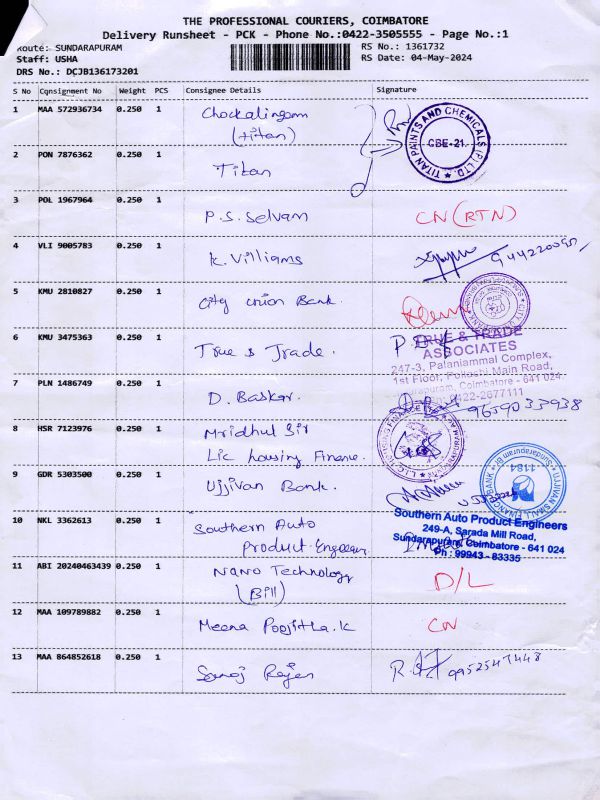 THE PROFESSIONAL COURIERS, COIMBATORE
Delivery Runsheet - PCK - Phone No.:0422-3505555 - Page No.:1
Route: SUNDARAPURAM
RS No.: 1361732
Staff: USHA
RS Date: 04-May-2024
DRS No.: DCJB136173201
S No Consignment No Weight PCS Consignee Details Signature
1 MAA 572936734 0.250 1 Chockalingam
(titan)
TITAN PAINTS AND CHEMICALS (P) LTD.
CBE-21.
2 PON 7876362 0.250 1 Titan
3 POL 1967964 0.250 1 P.S. Selvam CN (RTN)
4 VLI 9005783 0.250 1 K. Villiams
5 KMU 2810827 0.250 1 City Union Bank.
6 KMU 3475363 0.250 1 True & Trade.
TRUE & TRADE
ASSOCIATES
247-3, Palaniammal Complex,
1st Floor, Pollachi Main Road,
Sundarapuram, Coimbatore - 641 024.
0422-2677111
7 PLN 1486749 0.250 1 D. Baskar. 9659033938
8 HSR 7123976 0.250 1 Mridhul Sir
Lic housing Finance.
9 GDR 5303500 0.250 1 Ujjivan Bank.
UJJIVAN SMALL FINANCE BANK
Sundarapuram Br
1184
10 NKL 3362613 0.250 1 Southern Auto
Product Engineer
Southern Auto Product Engineers
249-A, Sarada Mill Road,
Sundarapuram, Coimbatore - 641 024
Ph : 99943 - 83335
11 ABI 20240463439 0.250 1 Nano Technology
(Bill)
D/L
12 MAA 109789882 0.250 1 Meena Poojitha.K CN
13 MAA 864852618 0.250 1 Saroj Rajen 9952547448